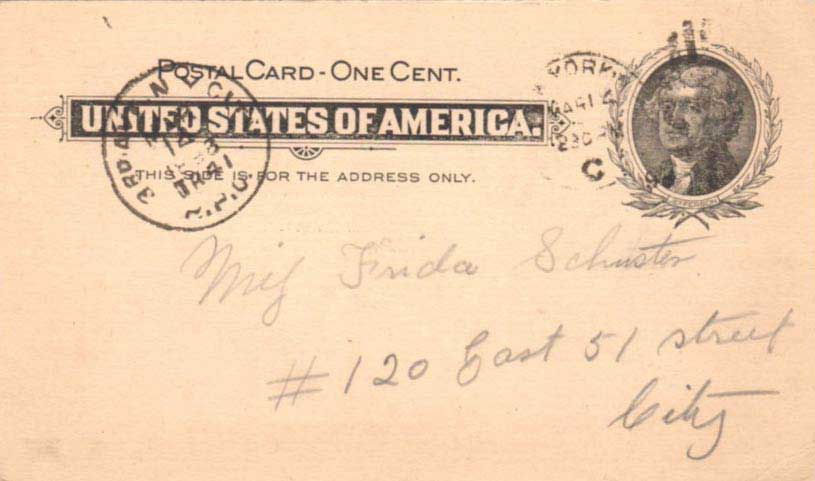 POSTAL CARD - ONE CENT.
UNITED STATES OF AMERICA.
THIS SIDE IS FOR THE ADDRESS ONLY.
3RD AV. N.Y. CITY
R.P.O.
YORK
C
JEFFERSON
Miss Frida Schuster
# 120 East 51 street
City